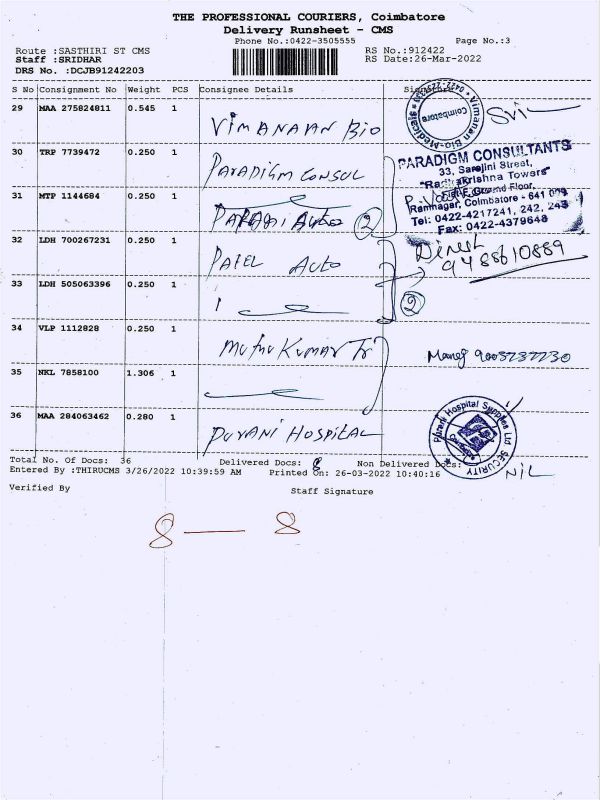 THE PROFESSIONAL COURIERS, Coimbatore
Delivery Runsheet - CMS
Phone No.:0422-3505555 Page No.:3
Route :SASTHIRI ST CMS RS No.:912422
Staff :SRIDHAR RS Date:26-Mar-2022
DRS No. :DCJB91242203
S No Consignment No Weight PCS Consignee Details Signature
29 MAA 275824811 0.545 1 VIMANAYAN BIO
30 TRP 7739472 0.250 1 PARADIGM CONSUL
PARADIGM CONSULTANTS
33, Sarojini Street,
"Radhakrishna Towers"
31 MTP 1144684 0.250 1 2
Ground Floor,
Ramnagar, Coimbatore - 641 009
Tel: 0422-4217241, 242, 243
Fax: 0422-4379648
32 LDH 700267231 0.250 1 PATEL Auto
Dinesh
9488610889
33 LDH 505063396 0.250 1 2
34 VLP 1112828 0.250 1 Muthu Kumar Tr
Manoj 9003737730
35 NKL 7858100 1.306 1
36 MAA 284063462 0.280 1 PURANI HOSPITAL
Purani Hospital Supplies Ltd
SECURITY
NIL
Total No. Of Docs: 36 Delivered Docs: 8 Non Delivered Docs:
Entered By :THIRUCMS 3/26/2022 10:39:59 AM Printed On: 26-03-2022 10:40:16
Verified By Staff Signature
8 — 8